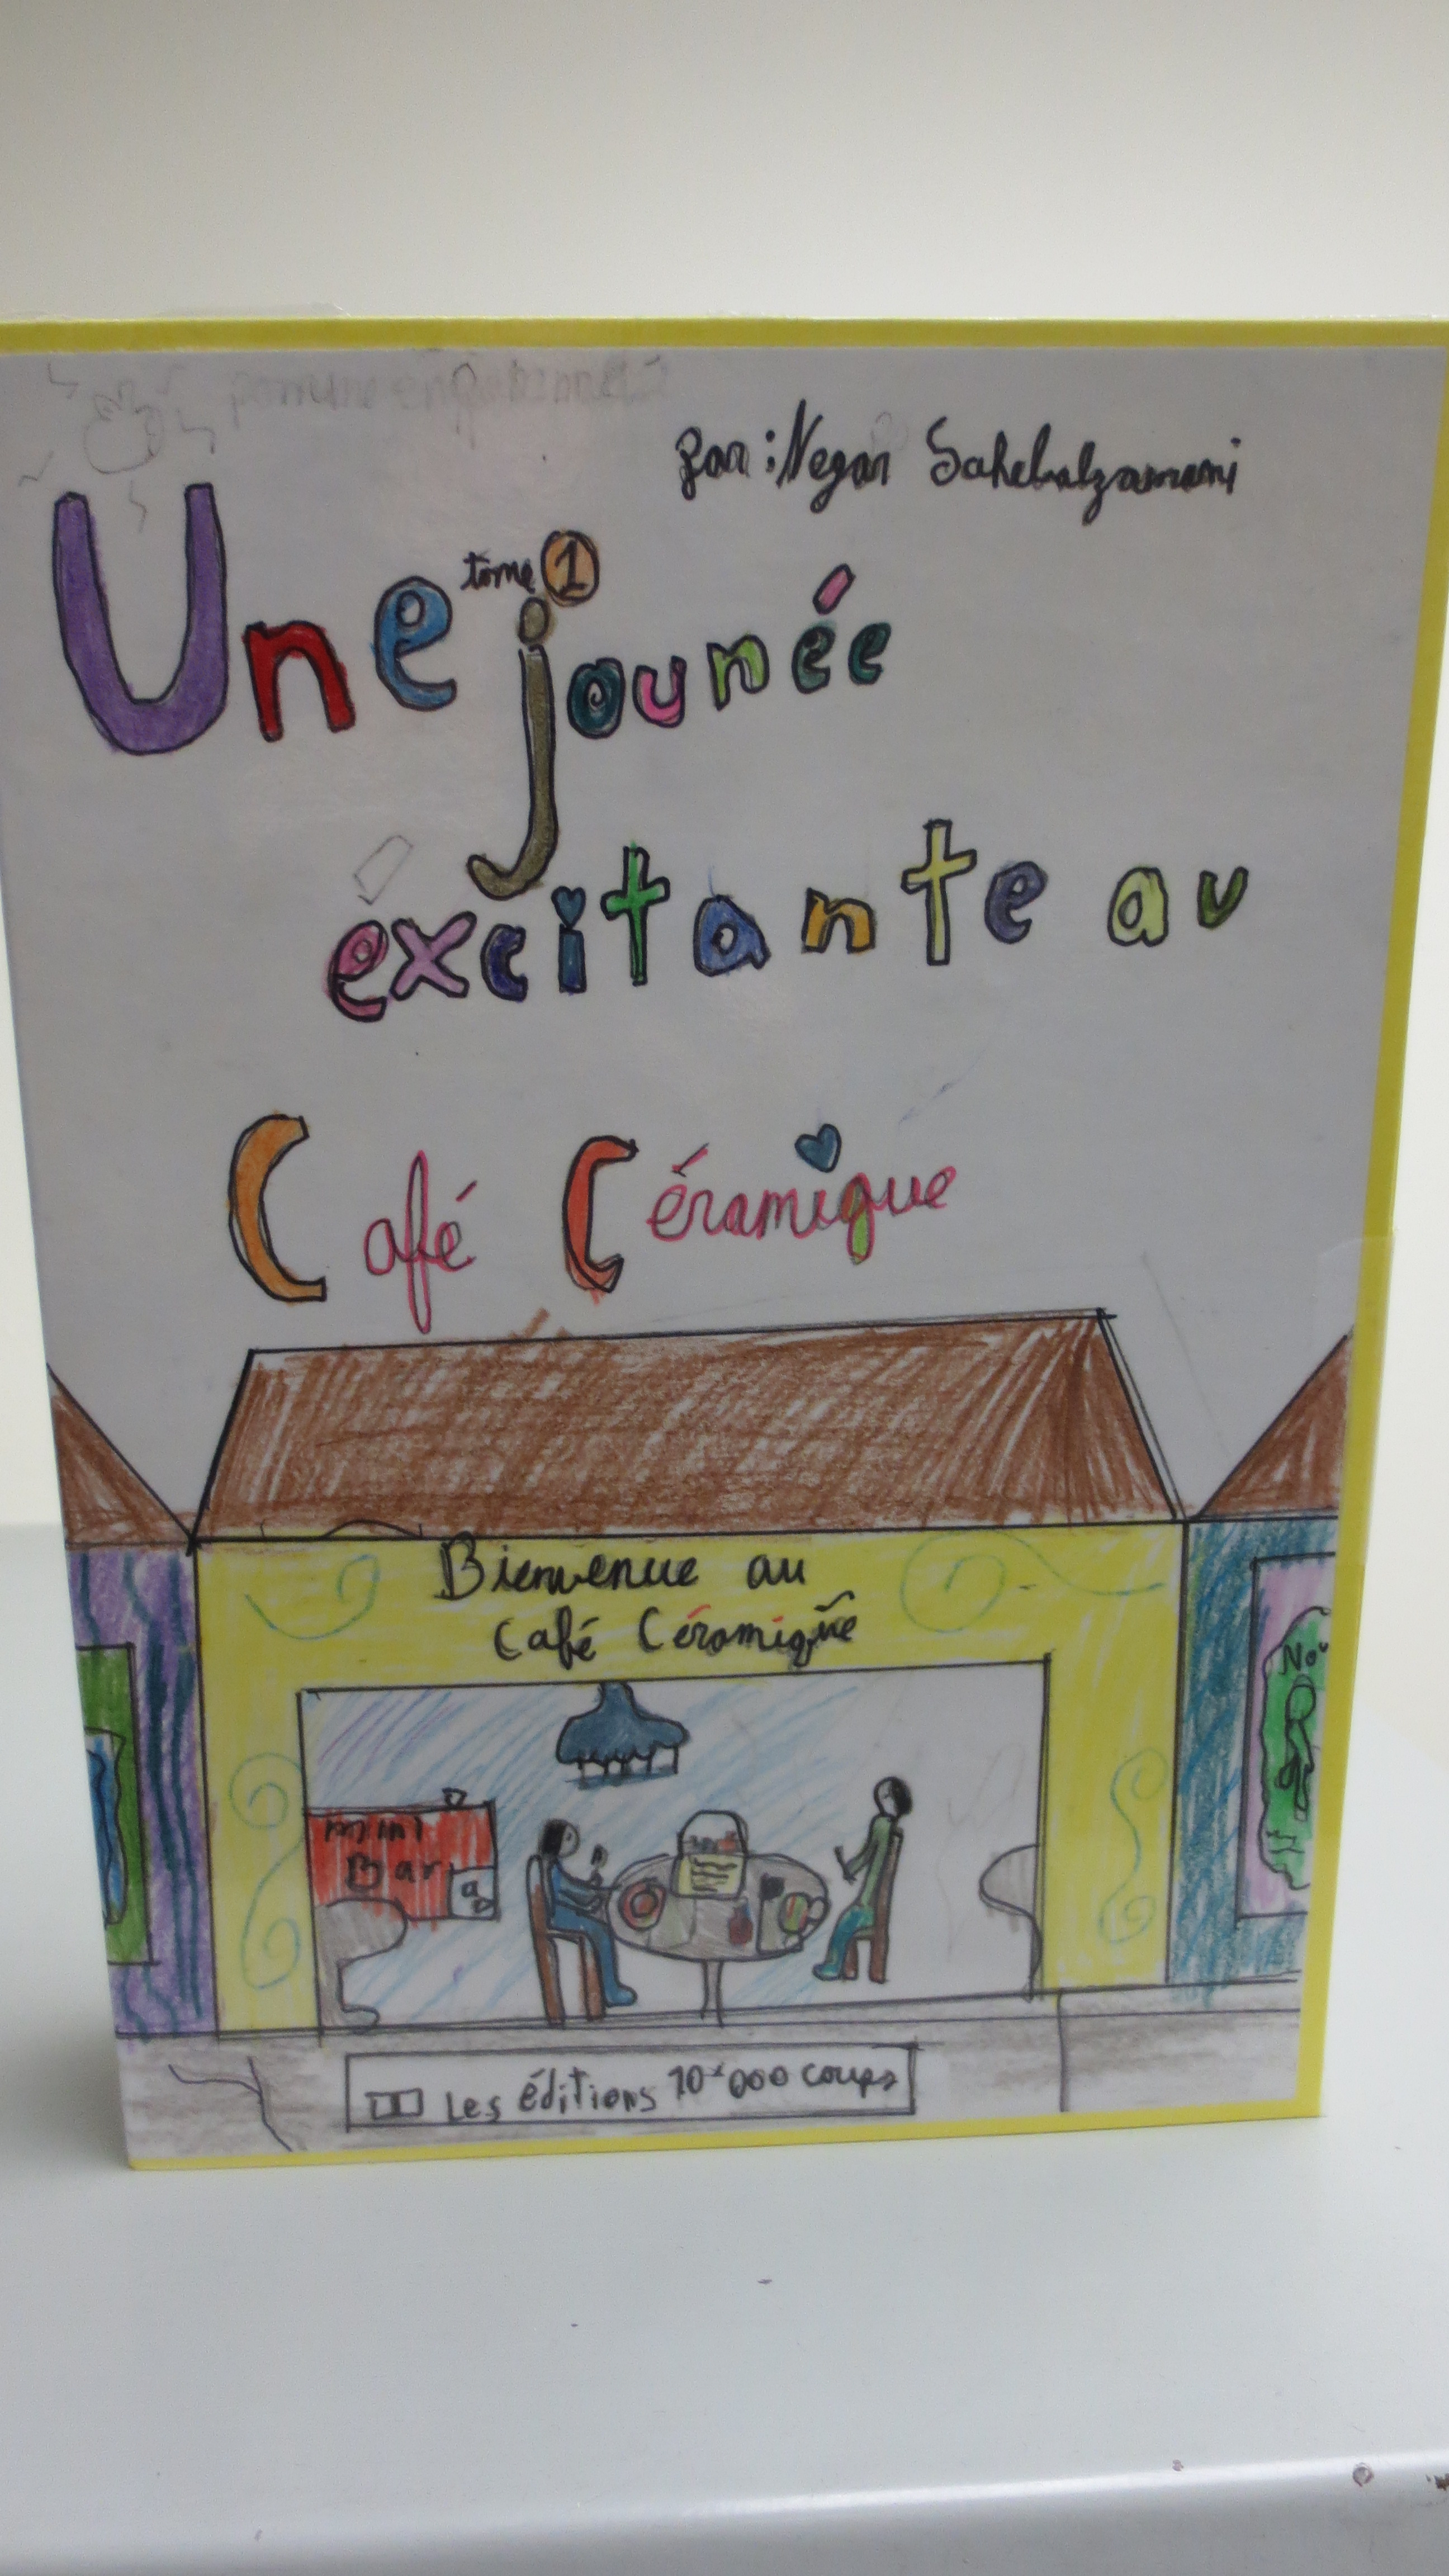 par : Negar Sahebalzamani
tome 1
Une jounée
excitante au
Café Céramique
Bienvenue au
Café Céramique
mini
Bar
Les éditions 10 000 coups